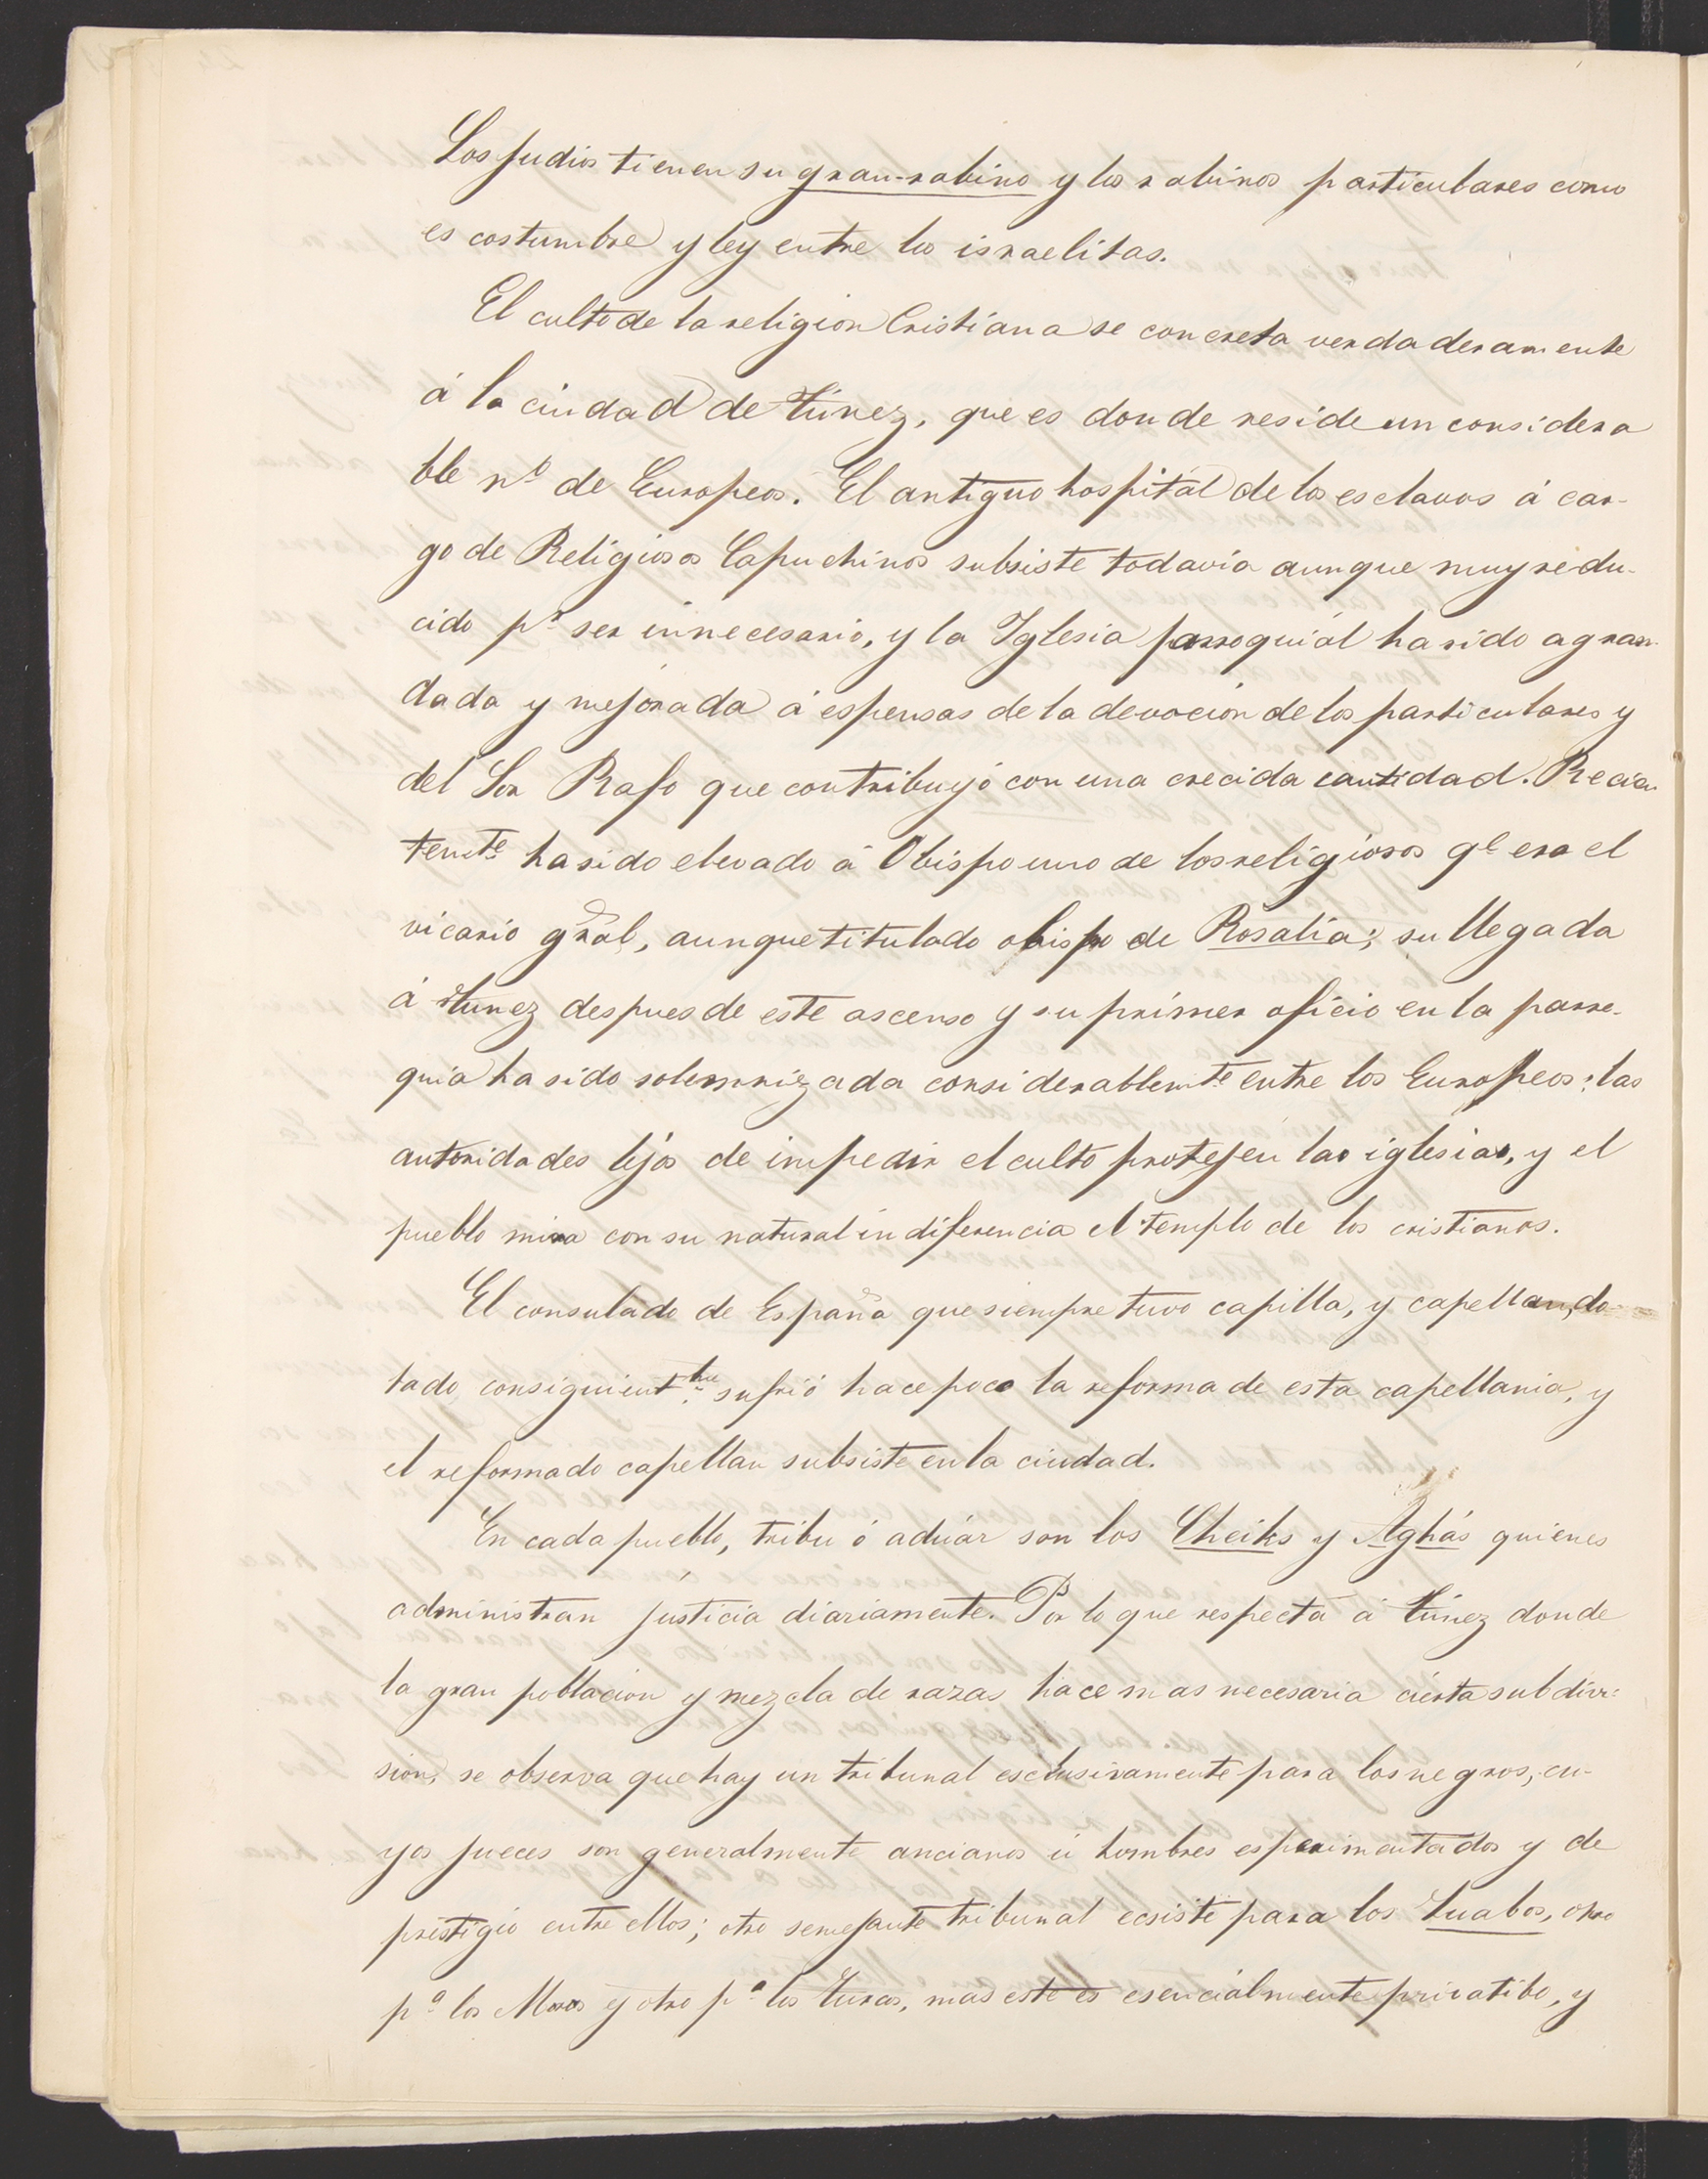 Los judios tienen su gran-rabino y los rabinos particulares como
es costumbre y ley entre los israelitas.
El culto de la religion Cristiana se concreta verdaderamente
á la ciudad de Túnez, que es donde reside un considera
ble nº de Europeos. El antiguo hospital de los esclavos á car-
go de Religiosos Capuchinos subsiste todavia aunque muy redu-
cido pr ser innecesario, y la Iglesia parroquial ha sido agran-
dada y mejorada á espensas de la devocion de los particulares y
del Sor Rafo que contribuyó con una crecida cantidad. Recien
temte ha sido elevado á Obispo uno de los religiosos qe era el
vicario gral, aunque titulado obispo de Rosalia; su llegada
á Tunez despues de este ascenso y su primer oficio en la parro-
quia ha sido solemnizada considerablemte entre los Europeos: las
autoridades lejos de impedir el culto protejen las iglesias, y el
pueblo mira con su natural indiferencia el templo de los cristianos.
El consulado de España que siempre tuvo capilla, y capellan, do-
tado, consiguientme sufrió hace poco la reforma de esta capellania, y
el reformado capellan subsiste en la ciudad.
En cada pueblo, tribu ó aduár son los Cheiks y Aghás quienes
administran justicia diariamente. Por lo que respecta á Túnez donde
la gran poblacion y mezcla de razas hace mas necesaria cierta subdivi-
sion, se observa que hay un tribunal esclusivamente para los negros, cu-
yos jueces son generalmente ancianos ú hombres esperimentados y de
prestigio entre ellos; otro semejante tribunal ecsiste para los Tuabos, otro
pª los Moros y otro pª los Turcos, mas este es esencialmente privatibo, y